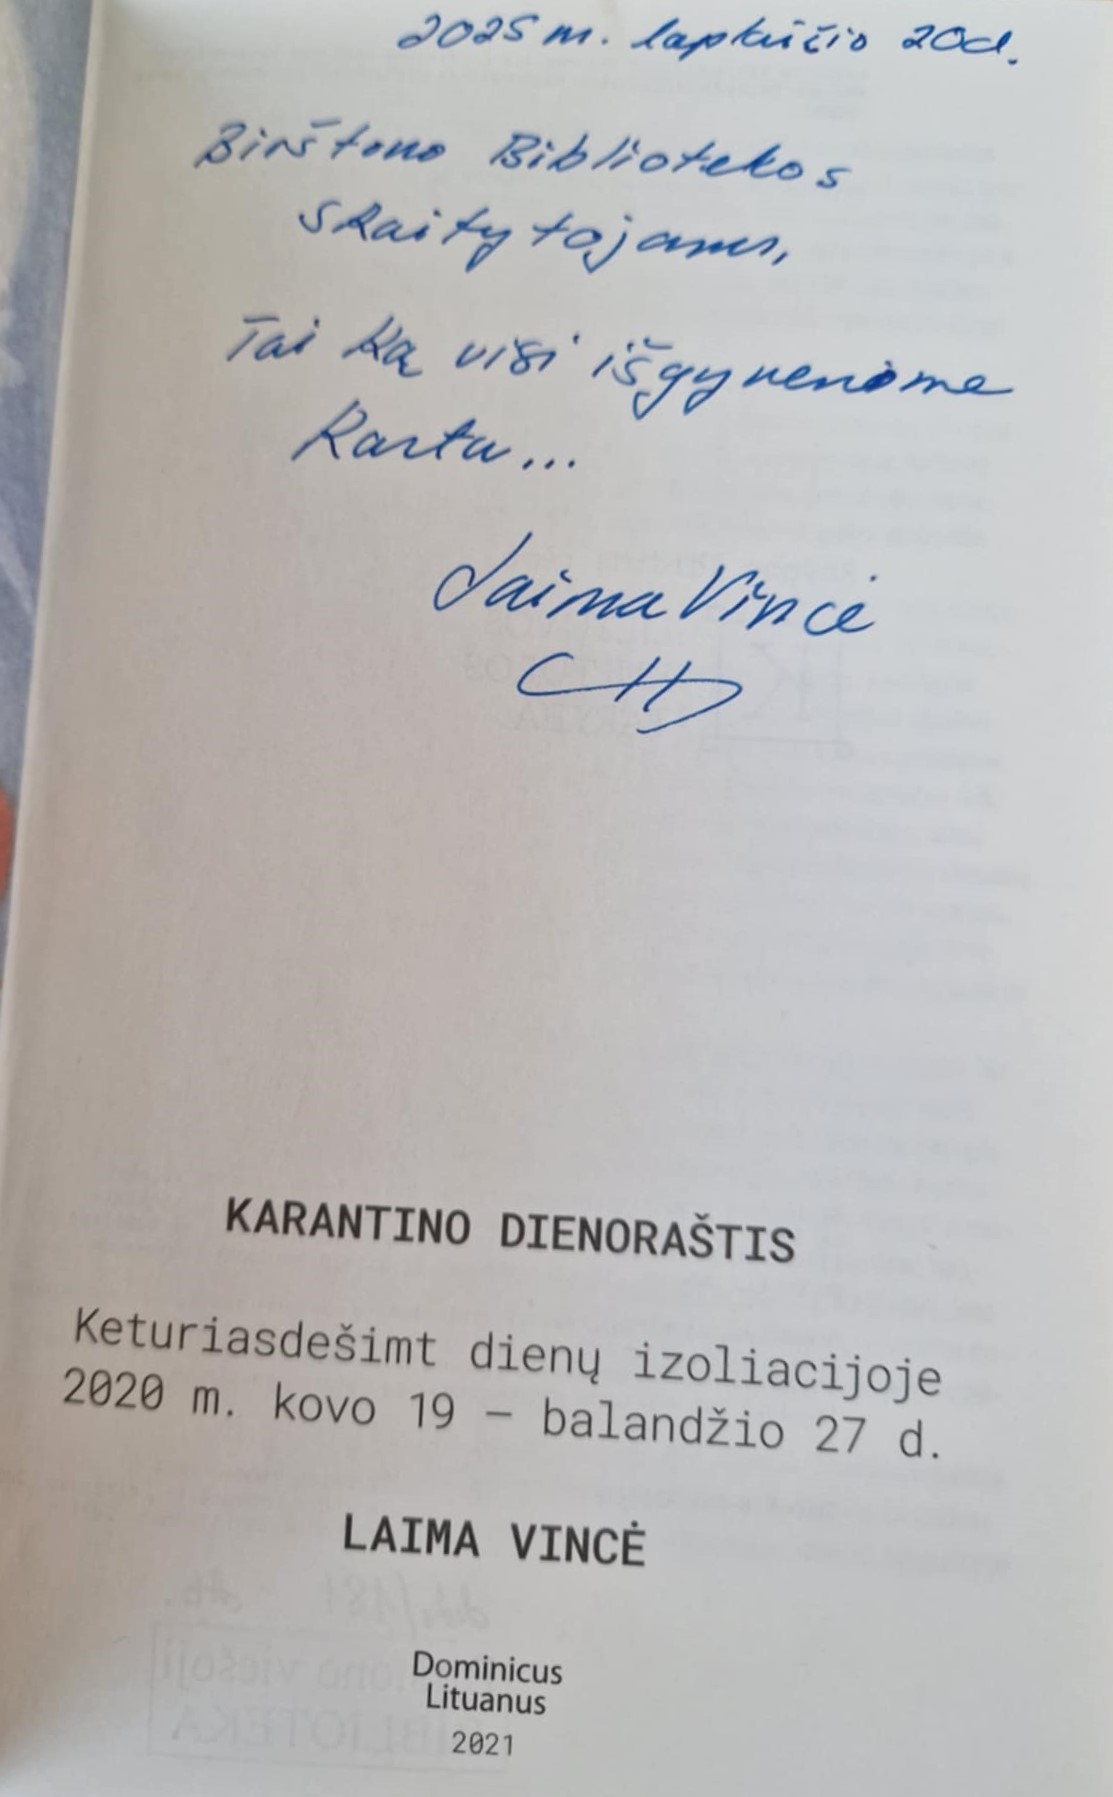 2025 m. lapkričio 20d.
Birštono Bibliotekos
skaitytojams,
Tai ką visi išgyvenome
kartu...
Laima Vincė
KARANTINO DIENORAŠTIS
Keturiasdešimt dienų izoliacijoje
2020 m. kovo 19 – balandžio 27 d.
LAIMA VINCĖ
Dominicus
Lituanus
2021